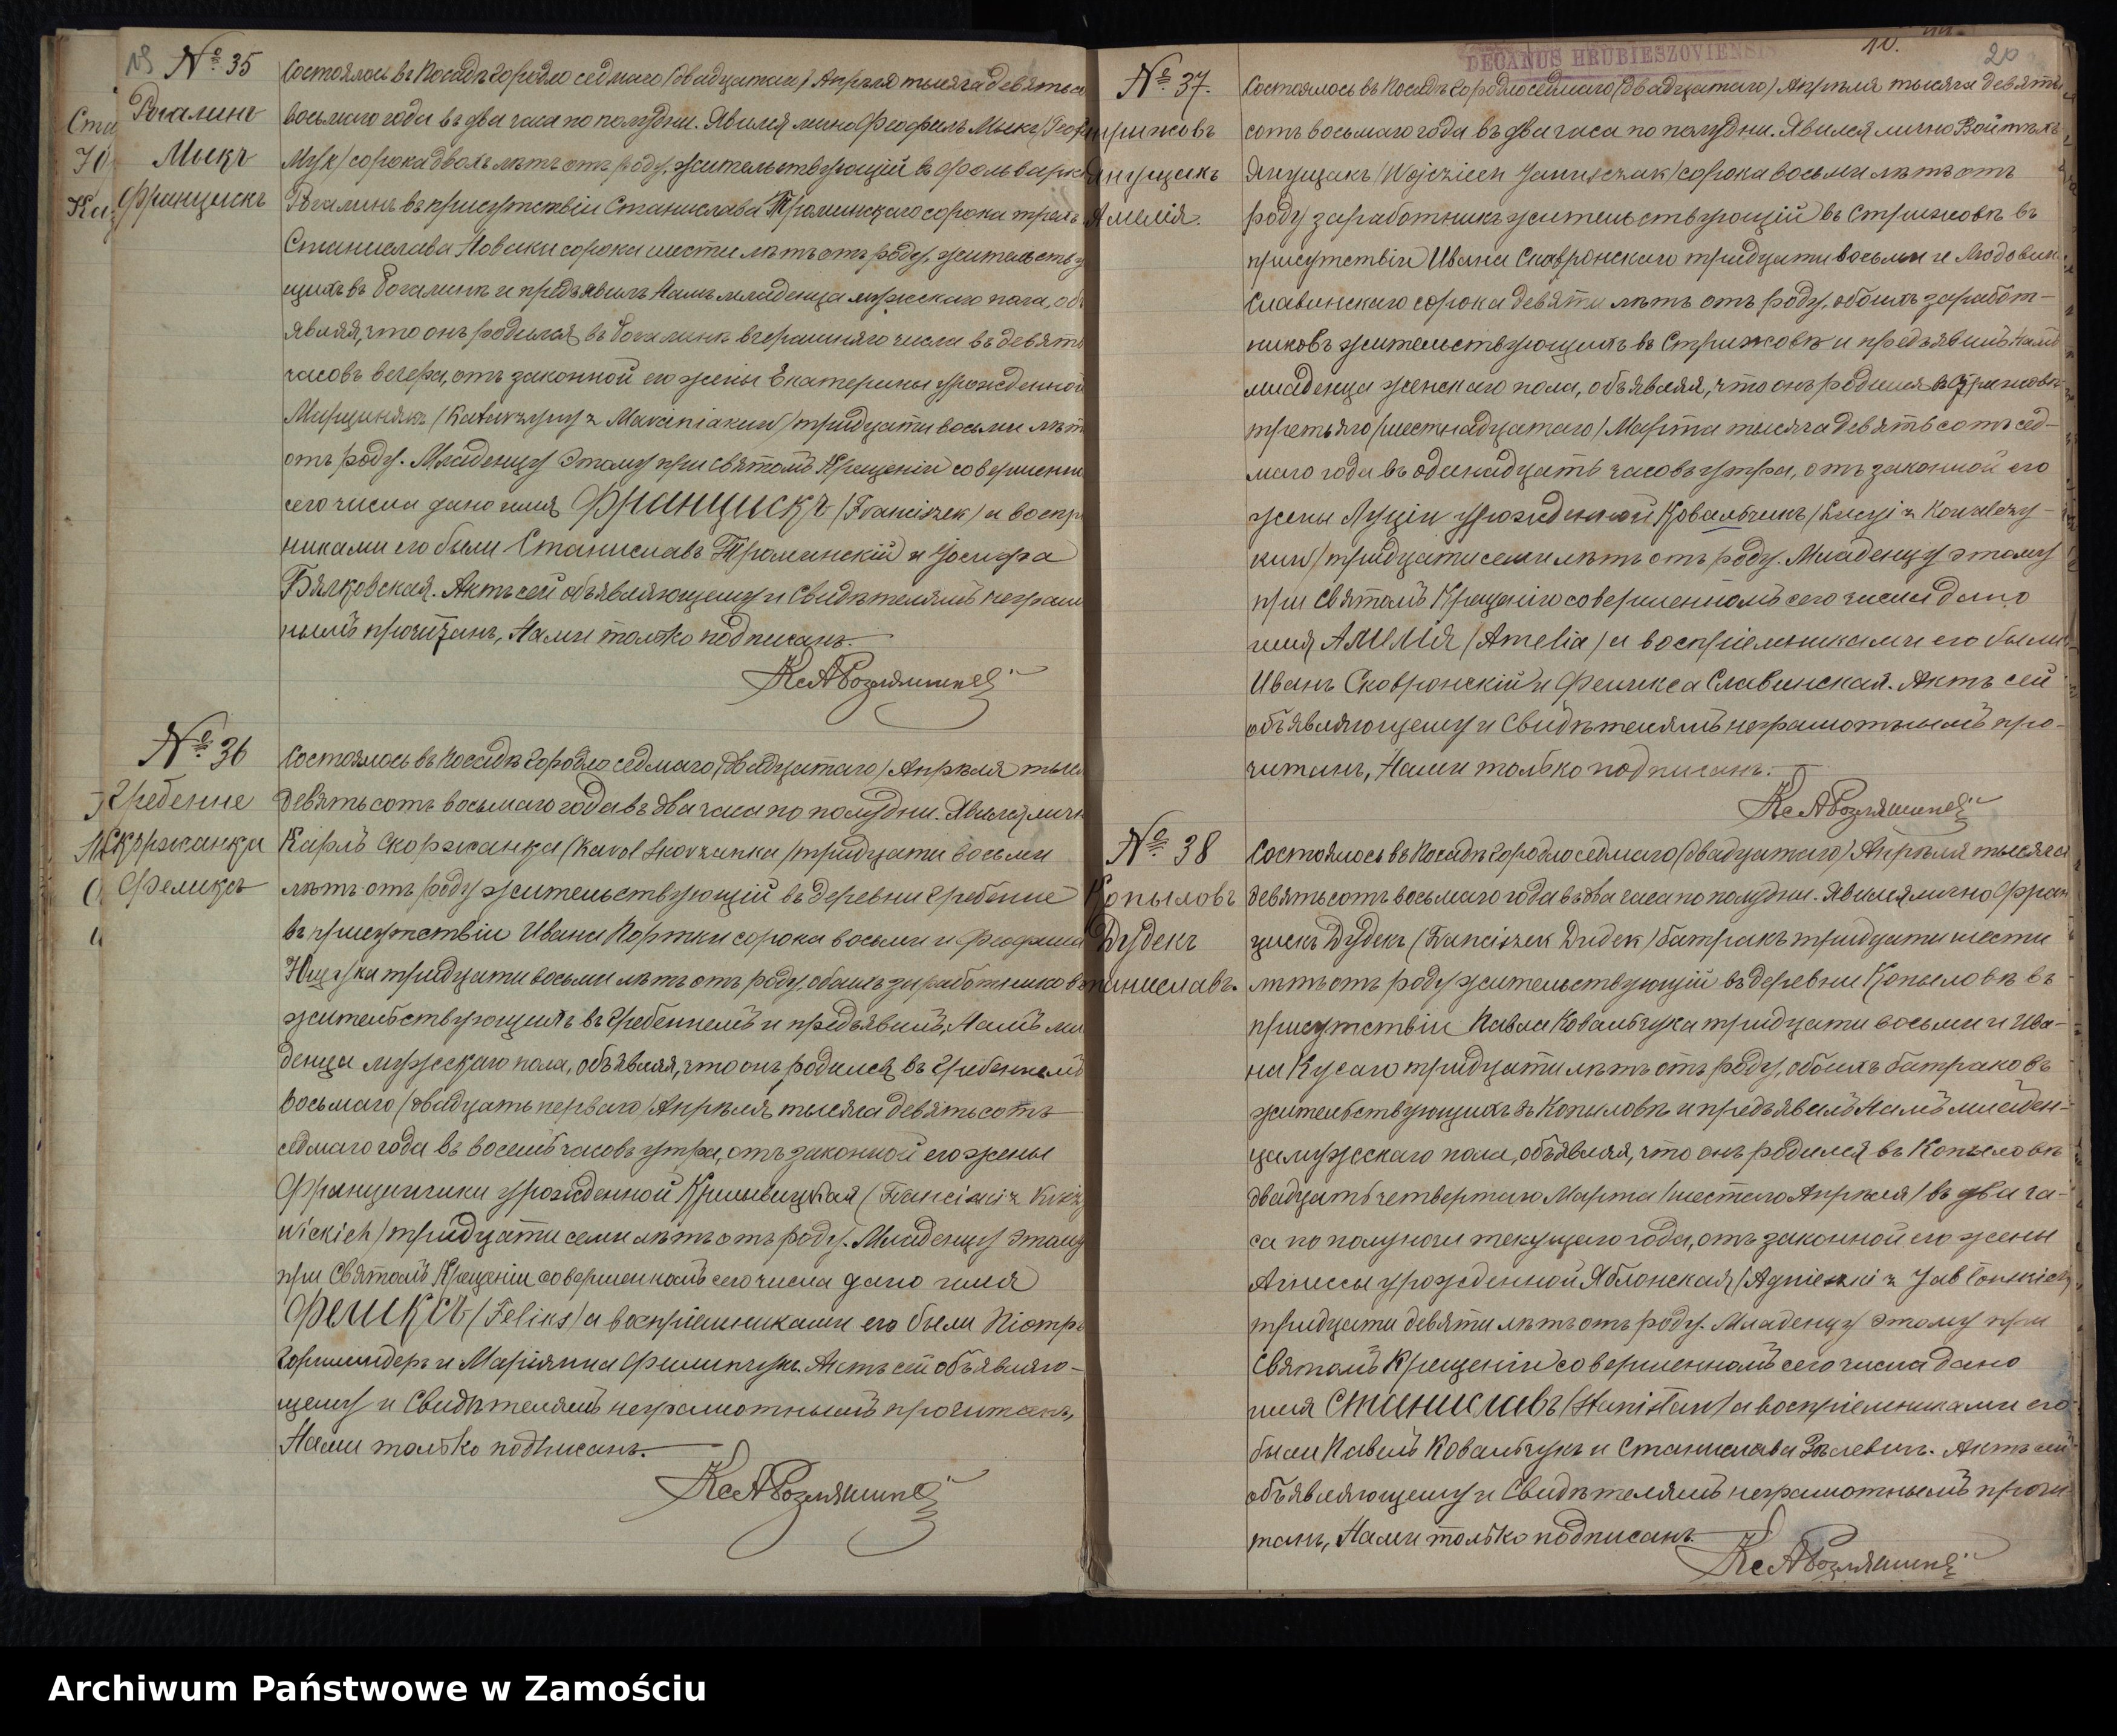 № 35
Рогалинъ
Мыкъ
Францискъ
Состоялось въ Посадѣ Городло седмаго (двадцатаго) Апрѣля тысяча девятьсо
восьмаго года въ два часа по полудни. Явился лично Феофилъ Мыкъ (Teof
Myk) сорока двохъ лѣтъ отъ роду, жительствующій въ фольварк
Рогалинъ въ присутствіи Станислава сорока трехъ
Станислава Новаки сорока шести лѣтъ отъ роду, жительству
щихъ въ Рогалинѣ и предъявилъ Намъ младенца мужескаго пола, об
являя, что онъ родился въ Рогалинѣ вчерашняго числа въ девять
часовъ вечера, отъ законной его жены Екатерины урожденной
Марцинякъ (Katarzyny z Marciniaków) тридцати восьми лѣт
отъ роду. Младенцу этому при Святомъ Крещеніи совершенн
сего числа дано имя Францискъ (Franciszek) а воспр
никами его были Станиславъ и Іосифа
Бялковская. Актъ сей объявляющему и Свидѣтелямъ неграм
нымъ прочитанъ, Нами только подписанъ.
№ 36
Гребенне
Скоржанка
Феликсъ
Состоялось въ Посадѣ Городло седмаго (двадцатаго) Апрѣля тыся
девятьсотъ восьмаго года въ два часа по полудни. Явился личн
Карлъ Скоржанка (Karol Skorzanka) тридцати восьми
лѣтъ отъ роду жительствующій въ деревни Гребенне
въ присутствіи Ивана Портки сорока восьми и Феофила
тридцати восьми лѣтъ отъ роду, обоихъ заработниковъ
жительствующихъ въ Гребеннемъ и предъявилъ Намъ мла
денца мужескаго пола, объявляя, что онъ родился въ Гребеннемъ
восьмаго (двадцать перваго) Апрѣля тысяча девятьсотъ
седмаго года въ восемь часовъ утра, отъ законной его жены
Францишки урожденной (Franciszki z
wickich) тридцати семи лѣтъ отъ роду. Младенцу этому
при Святомъ Крещеніи совершенномъ сего числа дано имя
Феликсъ (Feliks) а воспріемниками его были Піотръ
и Маріянна Филипчукъ. Актъ сей объявляю-
щему и Свидѣтелямъ неграмотнымъ прочитанъ,
Нами только подписанъ.
DECANUS HRUBIESZOVIENSIS
10.
20
№ 37.
трижовъ
Янущакъ
Амелія.
Состоялось въ Посадѣ Городло седмаго (двадцатаго) Апрѣля тысяча девять
сотъ восьмаго года въ два часа по полудни. Явился лично Войтѣхъ
Янущакъ (Wojciech Januszczak) сорока восьми лѣтъ отъ
роду заработникъ жительствующій въ Стрижовѣ въ
присутствіи Ивана Скавронскаго тридцати восьми и Людовик
Славинскаго сорока девяти лѣтъ отъ роду, обоихъ заработ-
никовъ жительствующихъ въ Стрижовѣ и предъявилъ Намъ
младенца женскаго пола, объявляя, что онъ родился въ Стрижовѣ
третьяго (шестнадцатаго) Марта тысяча девятьсотъ сед-
маго года въ одинадцать часовъ утра, отъ законной его
жены Луціи урожденной Ковальчикъ (Łucyi z Kowalczy-
ków) тридцати семи лѣтъ отъ роду. Младенцу этому
при Святомъ Крещеніи совершенномъ сего числа дано
имя Амелія (Amelia) а воспріемниками его были
Иванъ Скавронскій и Феликса Славинская. Актъ сей
объявляющему и Свидѣтелямъ неграмотнымъ про-
читанъ, Нами только подписанъ.
№ 38
Копыловъ
Дудекъ
таниславъ.
Состоялось въ Посадѣ Городло седмаго (двадцатаго) Апрѣля тысяча
девятьсотъ восьмаго года въ два часа по полудни. Явился лично Фран
цискъ Дудекъ (Franciszek Dudek) батракъ тридцати шести
лѣтъ отъ роду жительствующій въ деревни Копыловѣ въ
присутствіи Павла Ковальчука тридцати восьми и Ива-
на Кусаго тридцати лѣтъ отъ роду, обоихъ батраковъ
жительствующихъ въ Копыловѣ и предъявилъ Намъ младен-
ца мужескаго пола, объявляя, что онъ родился въ Копыловѣ
двадцать четвертаго Марта (шестаго Апрѣля) въ два ча-
са по полуночи текущаго года, отъ законной его жены
Агнессы урожденной Яблонская (Agnieszki z Jabłońskich)
тридцати девяти лѣтъ отъ роду. Младенцу этому при
Святомъ Крещеніи совершенномъ сего числа дано
имя Станиславъ (Stanisław) а воспріемниками его
были Павелъ Ковальчукъ и Станислава. Актъ сей
объявляющему и Свидѣтелямъ неграмотнымъ прочи
танъ, Нами только подписанъ.
Archiwum Państwowe w Zamościu